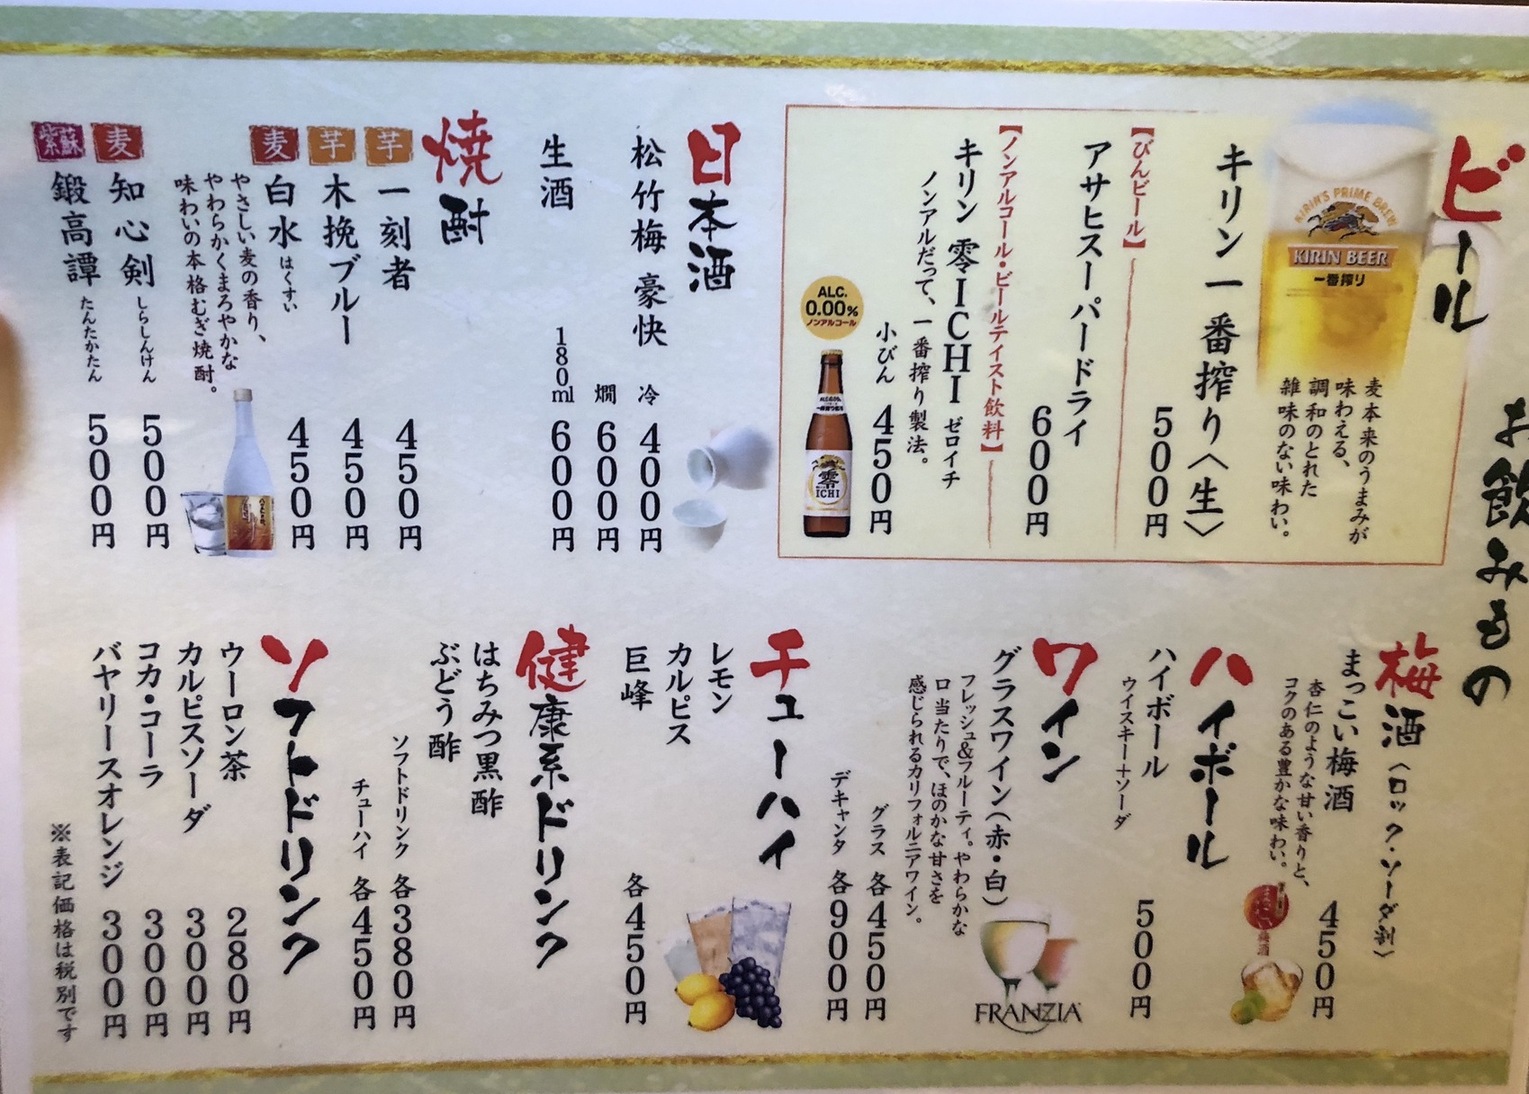 お飲みもの
ビール
KIRIN'S PRIME BREW
KIRIN BEER
一番搾り
麦本来のうまみが
味わえる、
調和のとれた
雑味のない味わい。
キリン一番搾り〈生〉
500円
【びんビール】
アサヒスーパードライ
600円
【ノンアルコール・ビールテイスト飲料】
キリン 零ICHI ゼロイチ
ノンアルだって、一番搾り製法。
小びん 450円
ALC.
0.00%
ノンアルコール
零
ICHI
日本酒
松竹梅 豪快
冷 400円
燗 600円
生酒
180ml 600円
焼酎
芋 一刻者 450円
芋 木挽ブルー 450円
麦 白水 はくすい 450円
やさしい麦の香り、
やわらかくまろやかな
味わいの本格むぎ焼酎。
麦 知心剣 しらしんけん 500円
紫蘇 鍛高譚 たんたかたん 500円
梅酒（ロック・ソーダ割）
まっこい梅酒 450円
杏仁のような甘い香りと、
コクのある豊かな味わい。
ハイボール
ハイボール
ウイスキー＋ソーダ
500円
ワイン
グラスワイン（赤・白）
フレッシュ&フルーティ。やわらかな
口当たりで、ほのかな甘さを
感じられるカリフォルニアワイン。
FRANZIA
グラス 各450円
デキャンタ 各900円
チューハイ
レモン
カルピス
巨峰
各450円
健康系ドリンク
はちみつ黒酢
ぶどう酢
ソフトドリンク 各380円
チューハイ 各450円
ソフトドリンク
ウーロン茶 280円
カルピスソーダ 300円
コカ・コーラ 300円
バヤリースオレンジ 300円
※表記価格は税別です